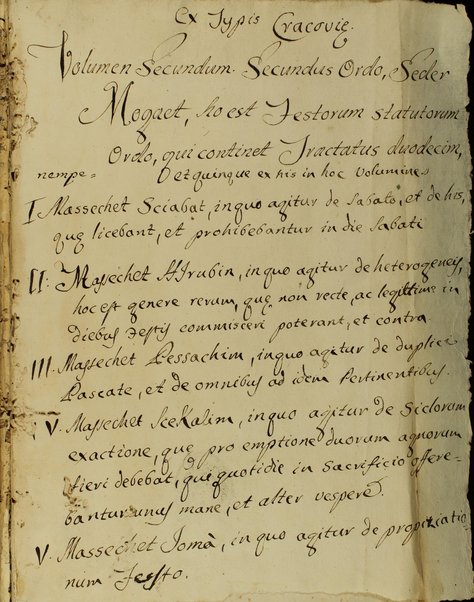 Ex Typis Cracovię.
Volumen Secundum. Secundus Ordo, Seder
Mogaet, ho est Festorum statutorum
Ordo, qui continet Tractatus duodecim,
nempe= et quinque ex his in hoc Volumine
I Massechet Sciabat, in quo agitur de Sabato, et de his,
quę licebant, et prohibebantur in die Sabati
II. Masechet Hirubin, in quo agitur de heterogeneis,
hoc est genere rerum, quę non recte, ac legittime in
diebus Festis commisceri poterant, et contra.
III. Massechet Pessachim, in quo agitur de duplici
Pascate, et de omnibus ad idem Pertinentibus.
V. Massechet Scekalim, in quo agitur de Siclorum
exactione, que pro emptione duorum agnorum
fieri debebat, qui quotidie in Sacrificio offere-
bantur unus mane, et alter vespere.
V. Massechet Jomà, in quo agitur de propitiatio
num Festo.